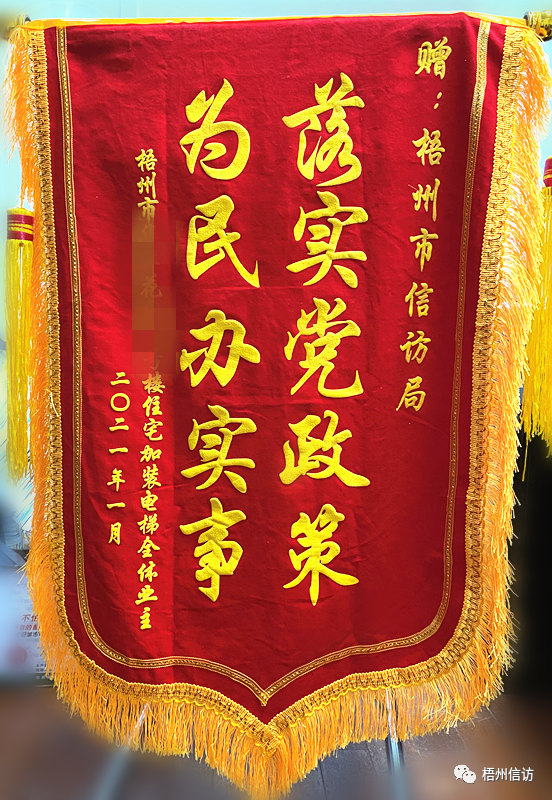 赠：梧州市信访局
落实党政策
为民办实事
梧州市
楼住宅加装电梯全体业主
二〇二一年一月
梧州信访